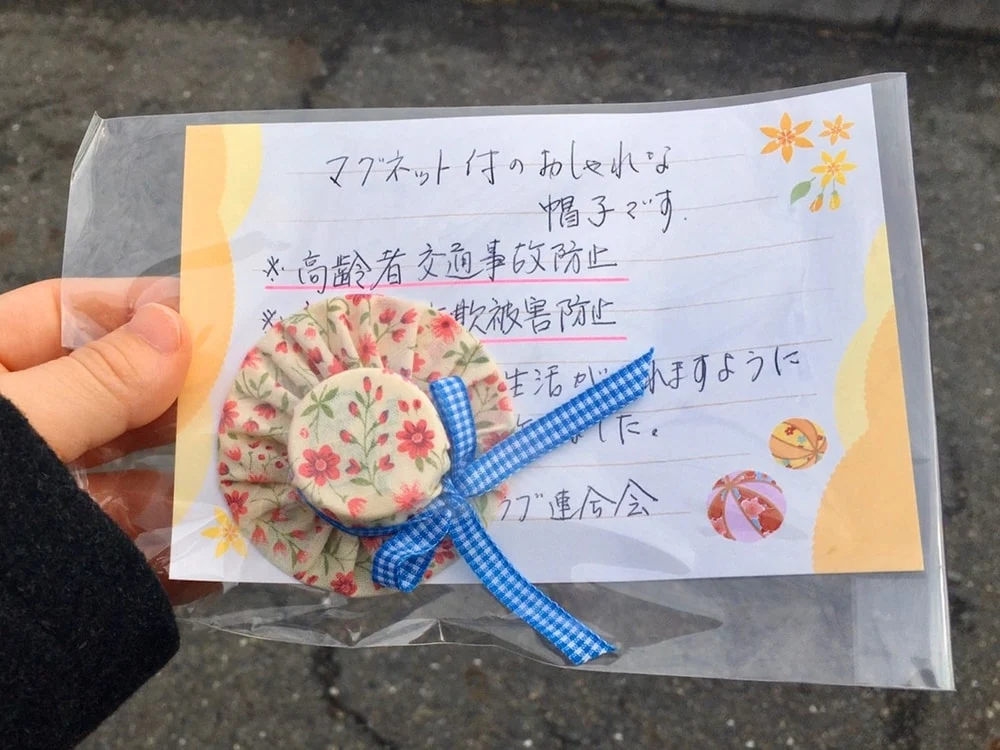 マグネット付のおしゃれな
帽子です.
※ 高齢者交通事故防止
※ 欺被害防止
生活が れますように
した。
ラブ連合会